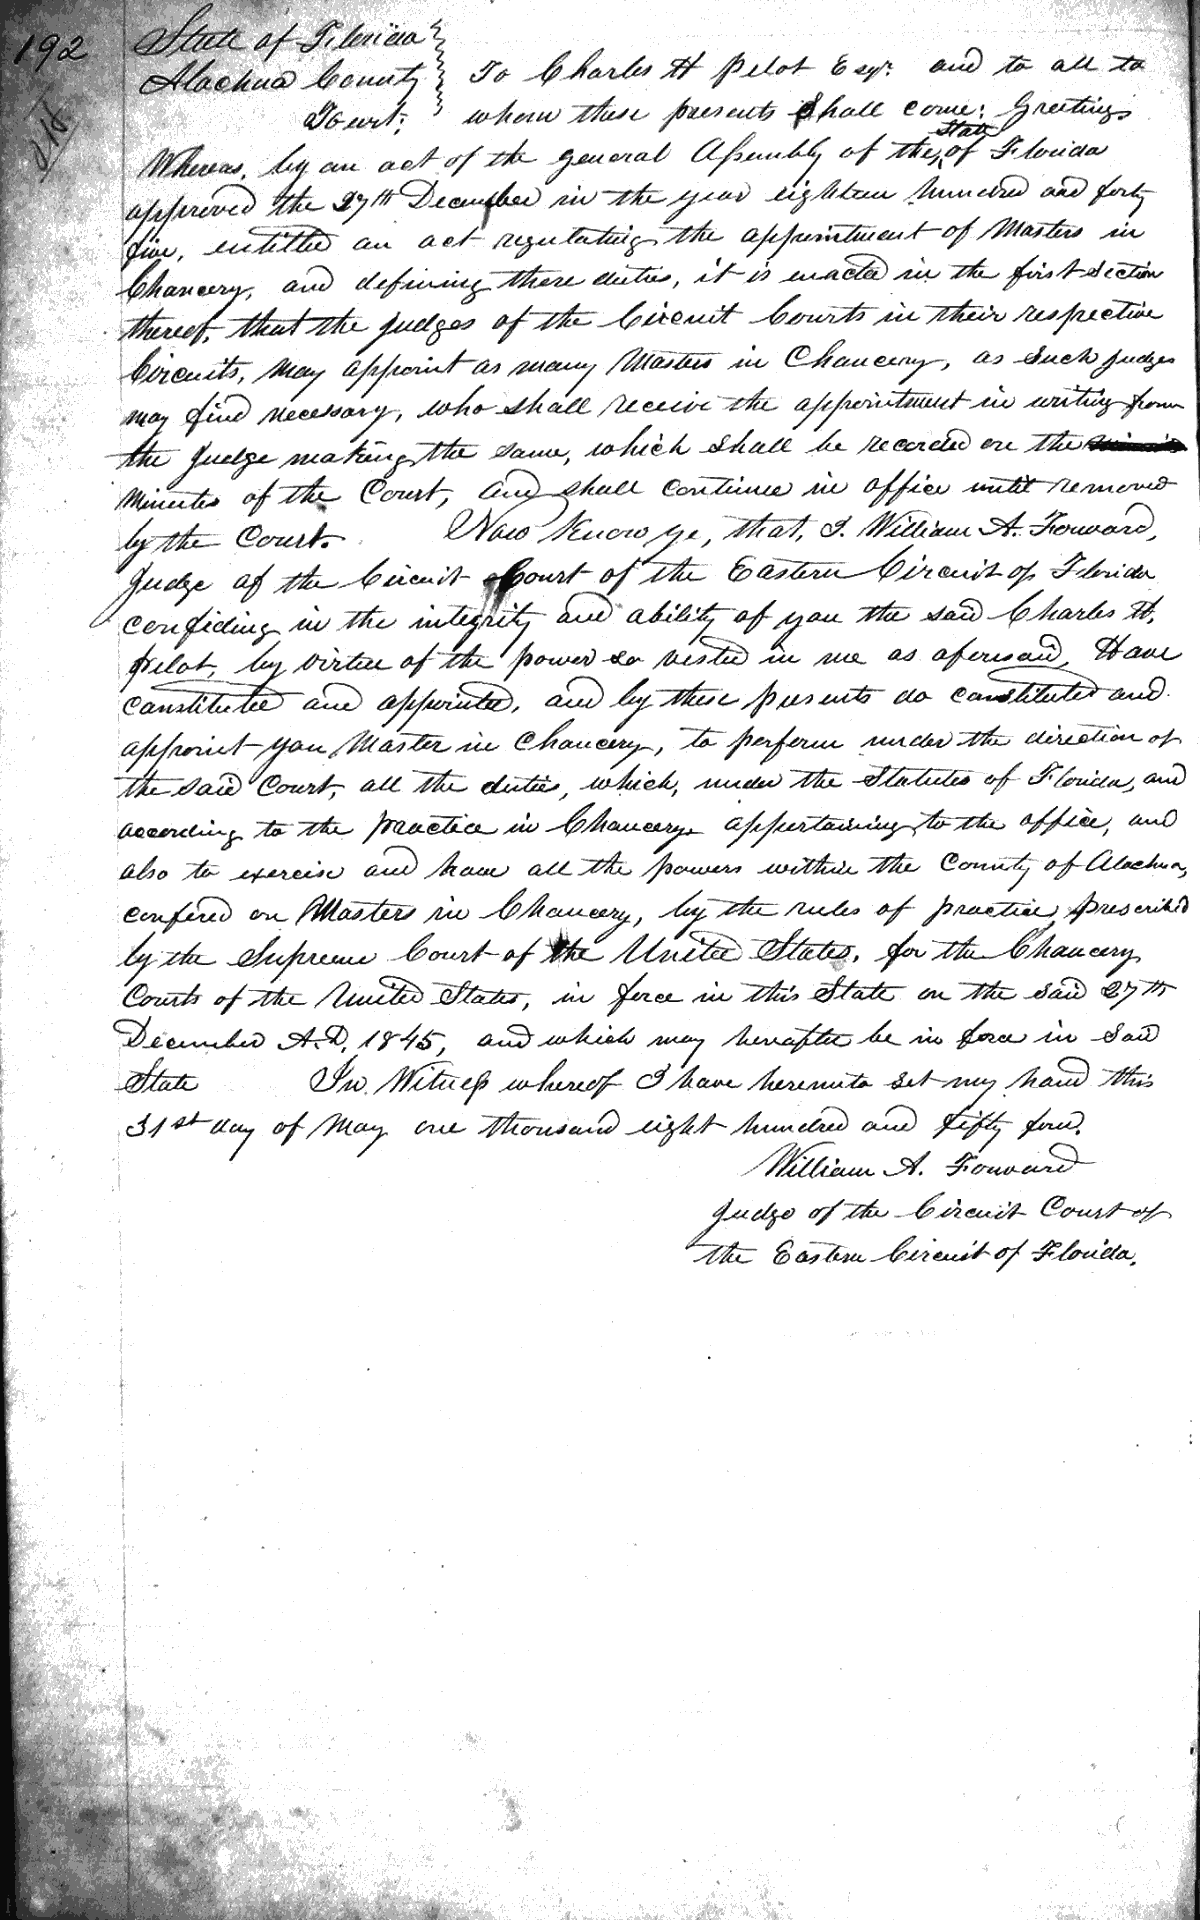 192
State of Florida
Alachua County To Charles H Pelot Esqr. and to all to
Court; whom these presents shall come: Greeting
State
Whereas, by an act of the general Assembly of the, of Florida
approved the 27th December in the year eighteen hundred and forty
five, entitled an act regulating the appointment of Masters in
Chancery, and defining there duties, it is enacted in the first section
thereof, that the judges of the Circuit Courts in their respective
Circuits, may appoint as many Masters in Chancery, as such judges
may find necessary, who shall receive the appointment in writing from
the judge making the same, which shall be recorded on the
minutes of the Court, and shall continue in office until removed
by the Court. Now know ye, that, I. William A. Forward,
Judge of the Circuit Court of the Eastern Circuit of Florida
confiding in the integrity and ability of you the said Charles H.
Pelot, by virtue of the power so vested in me as aforesaid, Have
constituted and appointed, and by these presents do constituted and
appoint you Master in Chancery, to perform under the direction of
the said Court, all the duties, which, under the Statutes of Florida, and
according to the practice in Chancery, appertaining to the office, and
also to exercise and have all the powers within the County of Alachua,
confered on Masters in Chancery, by the rules of practice, prescribed
by the Supreme Court of the United States, for the Chancery
Courts of the United States, in force in this State on the said 27th
December A.D. 1845, and which may hereafter be in force in said
State In Witness whereof I have hereunto set my hand this
31st day of May one thousand eight hundred and fifty four.
William A. Forward
Judge of the Circuit Court of
the Eastern Circuit of Florida.